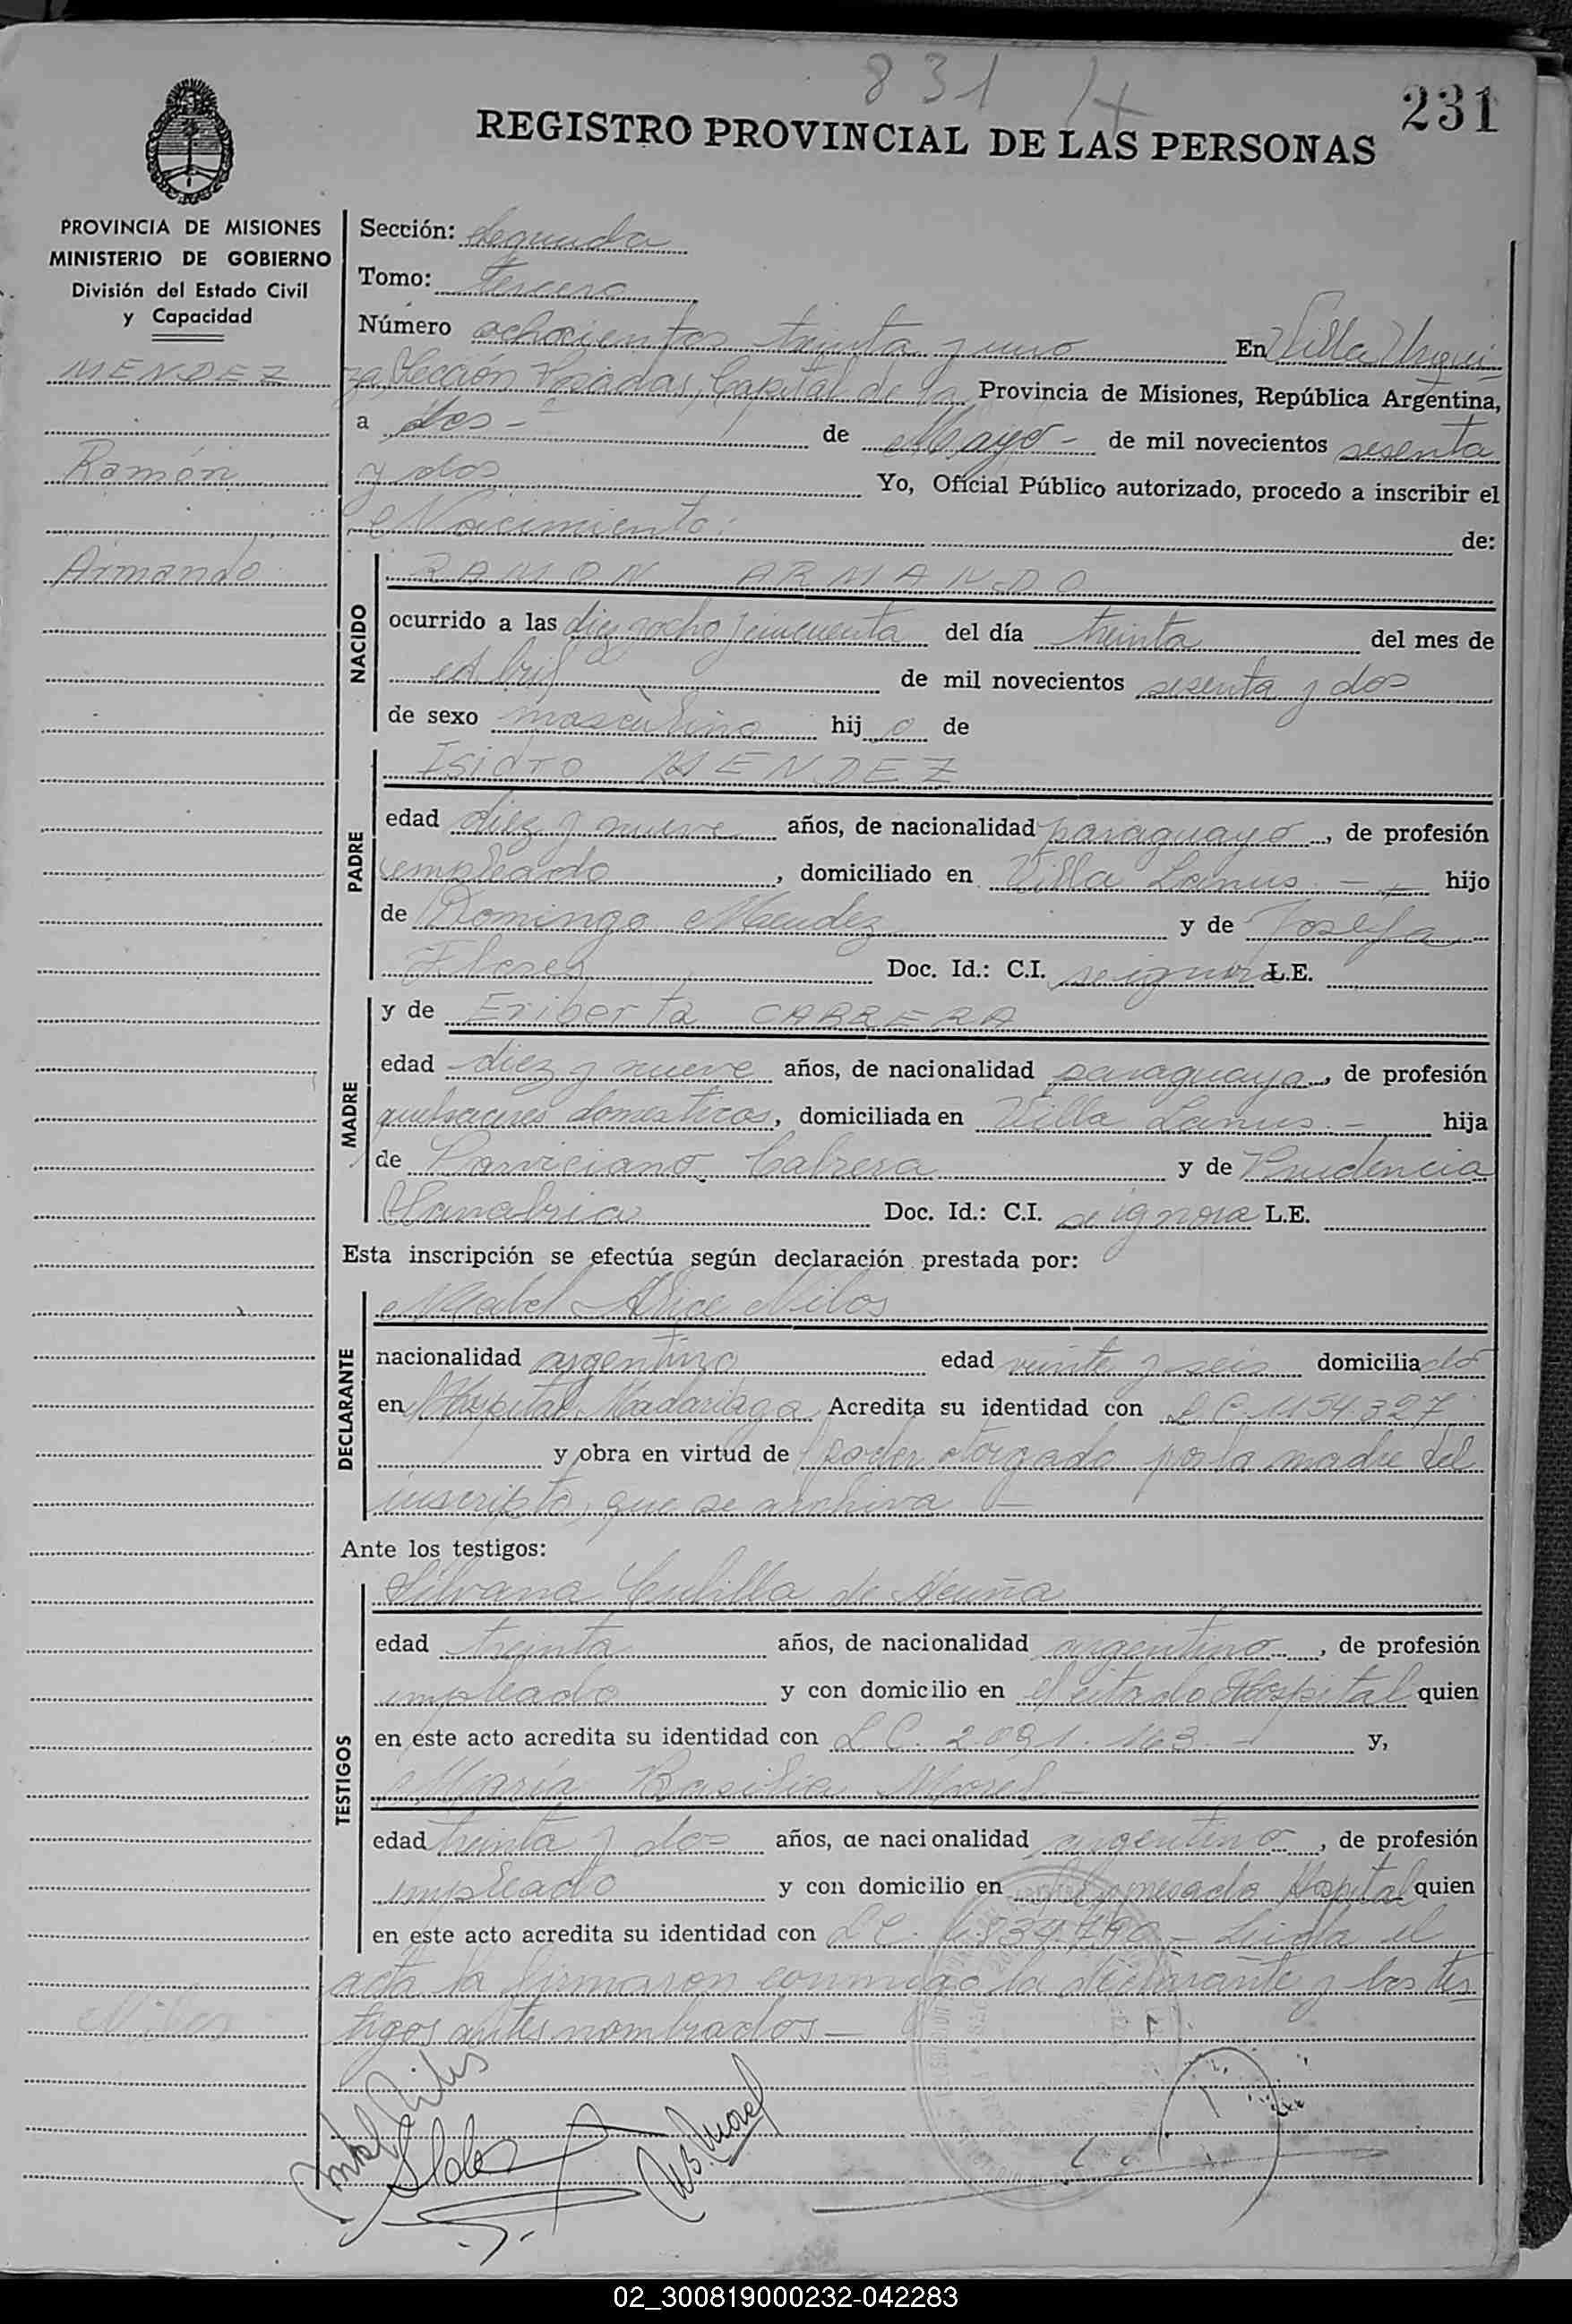 831
231
REGISTRO PROVINCIAL DE LAS PERSONAS
PROVINCIA DE MISIONES
MINISTERIO DE GOBIERNO
División del Estado Civil
y Capacidad
MENDEZ
Ramón
Armando
Sección: Segunda
Tomo: tercero
Número ochocientos treinta y uno En Villa Urqui-
za, Sección Posadas, Capital de la Provincia de Misiones, República Argentina,
a dos - de Mayo - de mil novecientos sesenta
y dos Yo, Oficial Público autorizado, procedo a inscribir el
Nacimiento: de:
NACIDO
RAMON ARMANDO
ocurrido a las diez y ocho y cincuenta del día treinta del mes de
Abril de mil novecientos sesenta y dos
de sexo masculino hijo de
PADRE
Isidro MENDEZ
edad diez y nueve años, de nacionalidad paraguayo, de profesión
empleado, domiciliado en Villa Lanus. - hijo
de Domingo Mendez y de Josefa
Doc. Id.: C.I. se ignora L.E.
MADRE
y de Eriberta CABRERA
edad diez y nueve años, de nacionalidad paraguaya, de profesión
quehaceres domesticos, domiciliada en Villa Lanus. - hija
de Cabrera y de Prudencia
Sanabria Doc. Id.: C.I. se ignora L.E.
Esta inscripción se efectúa según declaración prestada por:
DECLARANTE
Mabel Alice Milos
nacionalidad argentina edad veinte y seis domiciliado
en Hospital Madariaga Acredita su identidad con L C 1154.327
y obra en virtud de poder otorgado por la madre del
inscripto, que se archiva -
Ante los testigos:
TESTIGOS
Silvana de Acuña
edad treinta años, de nacionalidad argentino, de profesión
empleado y con domicilio en el citado Hospital quien
en este acto acredita su identidad con L C. 2.091.163 - y,
María Basilia Morel -
edad treinta y dos años, de nacionalidad argentino, de profesión
empleado y con domicilio en el Hospital quien
en este acto acredita su identidad con L C. - Leida el
acta la firmaron conmigo la declarante y los tes-
tigos antes nombrados -
Milos
02_300819000232-042283